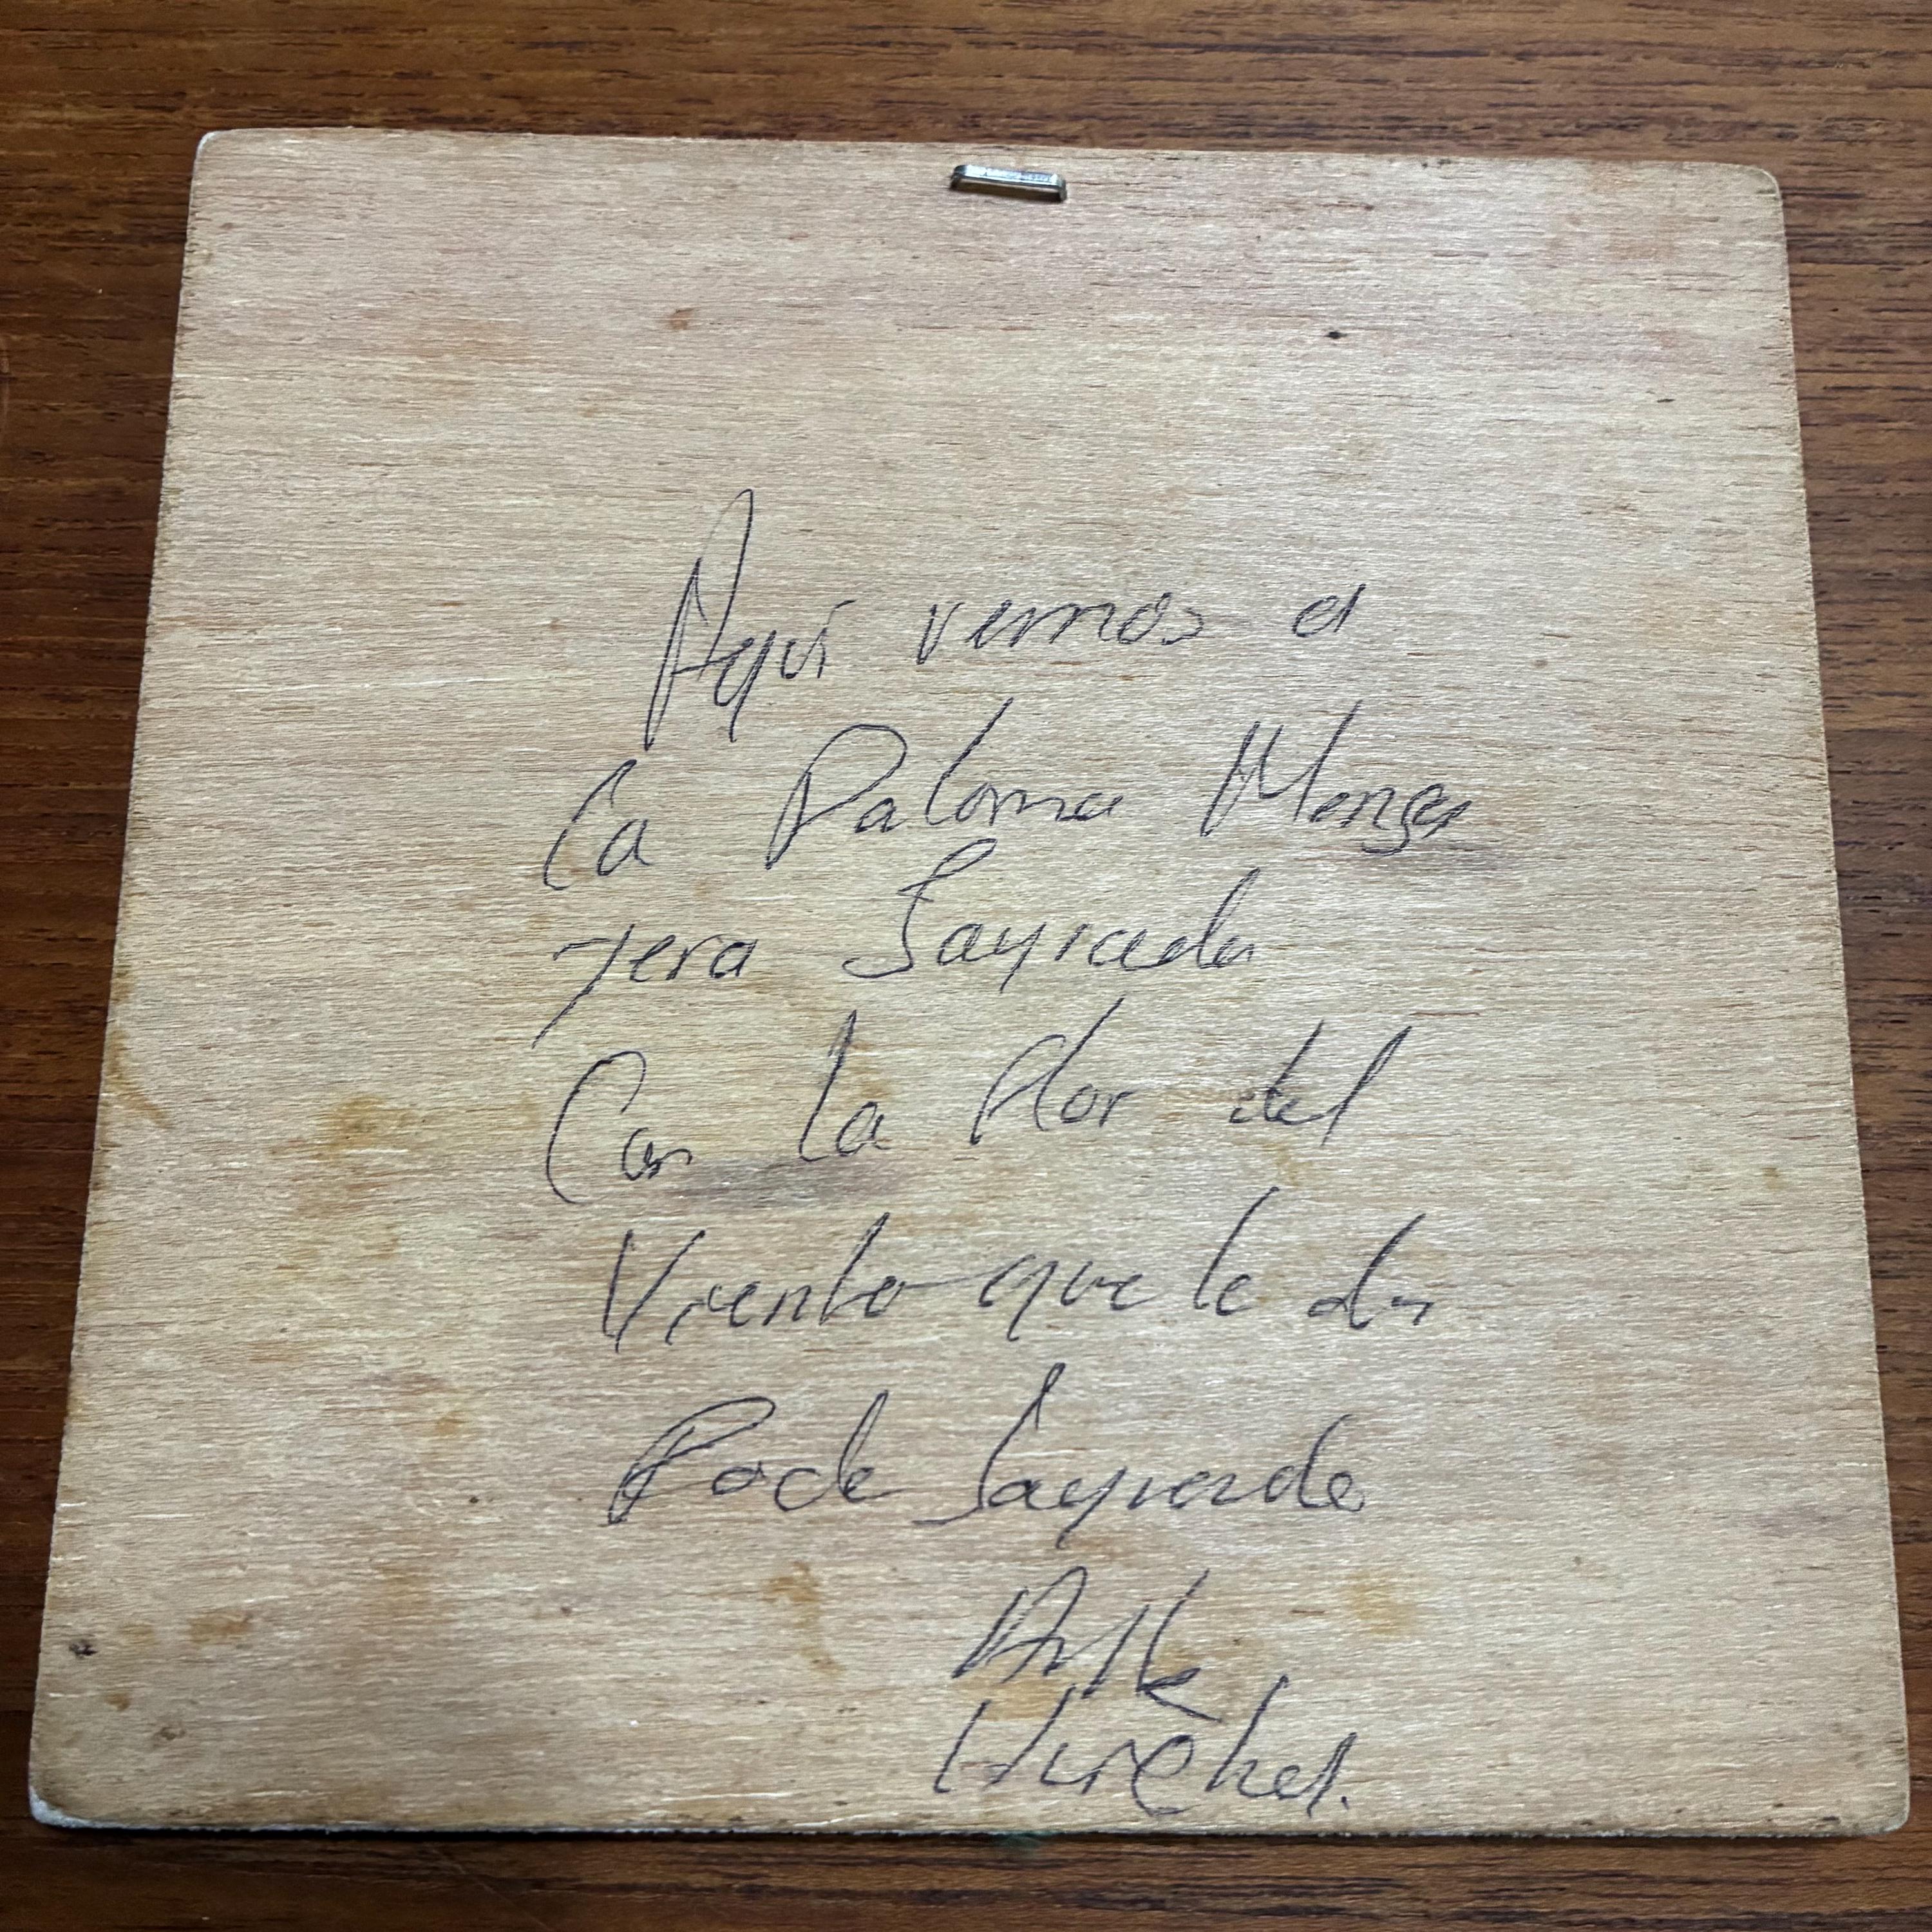 Aqui vemos a
la Paloma Mensa
jera Sagrada
Con la flor del
Viento que le da
Poder Sagrado